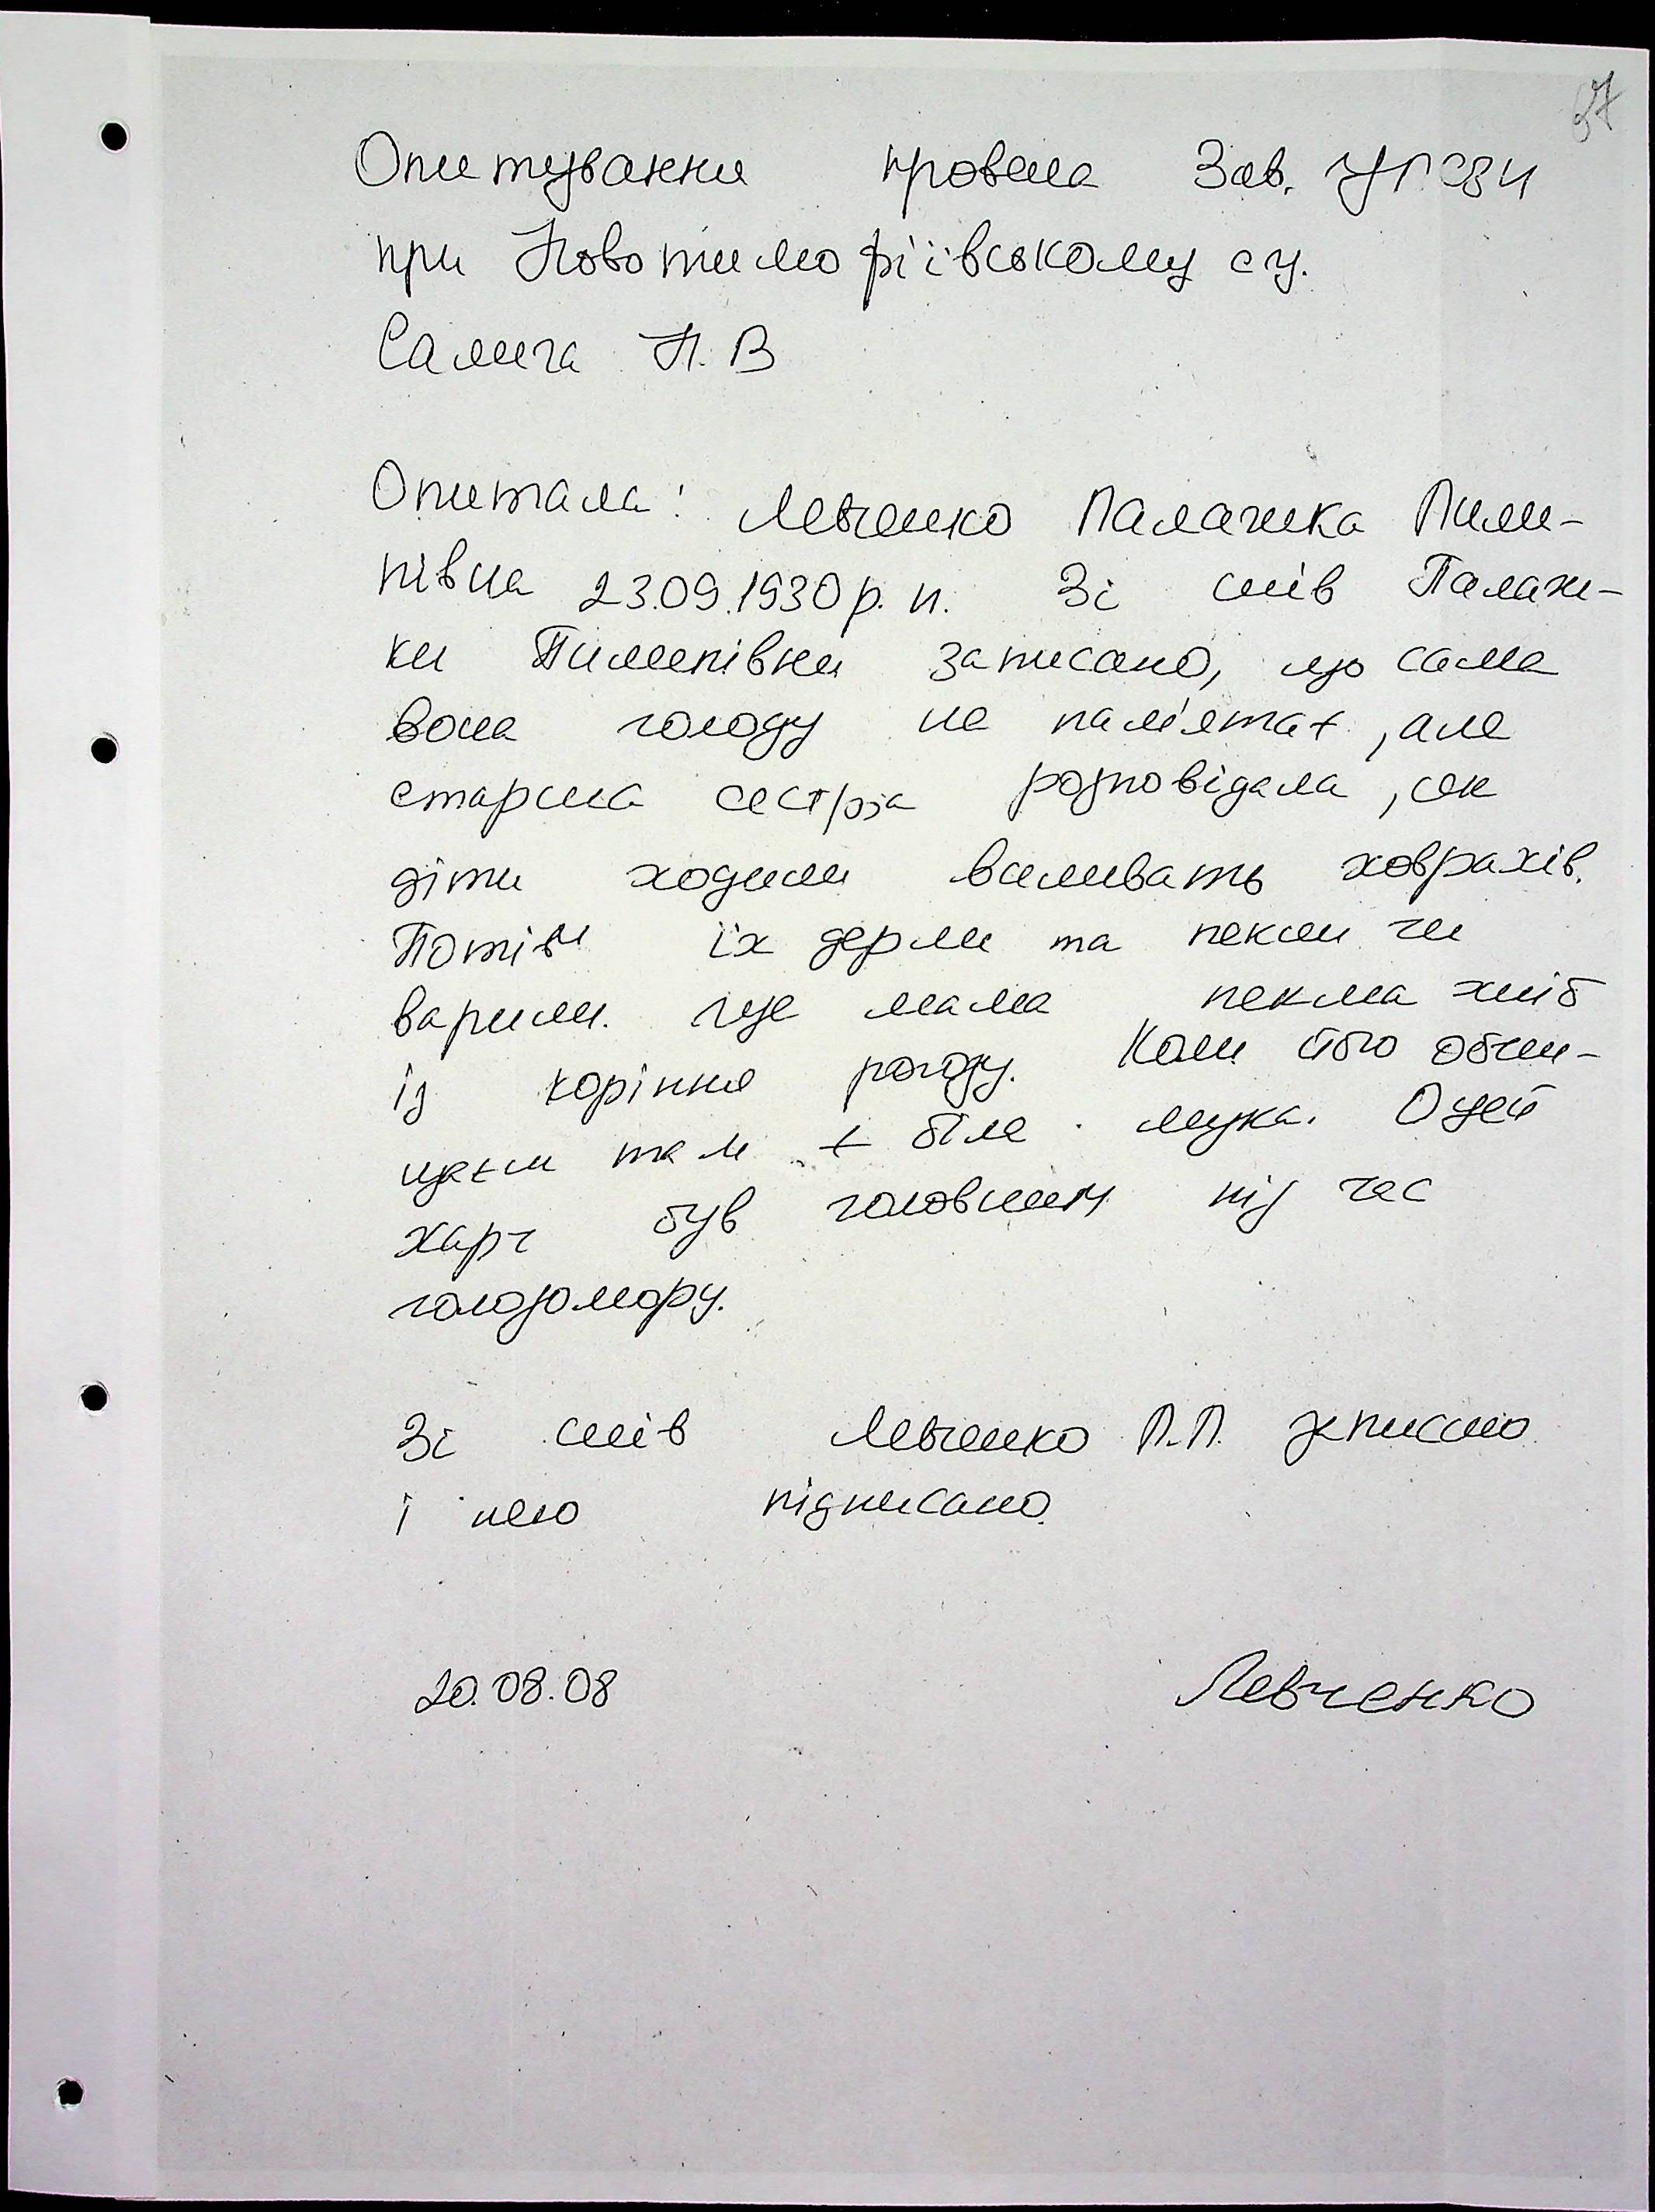 37
Опитування провела Зав.
при Новотимофіївському су.
Салига Н. В
Опитала: Левченко Палажка Пили-
півна 23.09.1930 р. н. Зі слів Палаж-
ки Пилипівни записано, що сама
вона голоду не пам'ятає, але
старша сестра розповідала, як
діти ходили виливать ховрахів.
Потім їх дерли та пекли чи
варили. Ще мама пекла хліб
із коріння рогозу. Коли його обчи-
щаєш там є біла мука. Оцей
харч був головним під час
голодомору.
Зі слів Левченко П.П. записано
і нею підписано.
20.08.08 Левченко